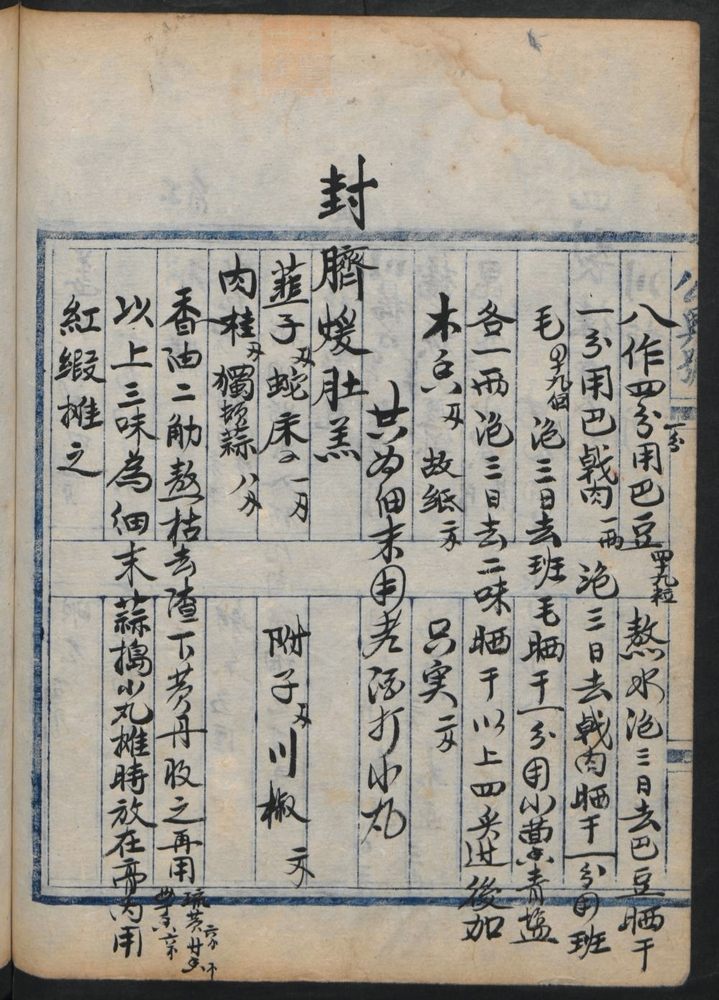 八作四分一分用巴豆四十九粒 熬水泡三日去巴豆晒干
一分用巴戟肉一両 泡三日去戟肉晒干一分用班
毛四十九個 泡三日去班毛晒干一分用小茴香青塩
各一両泡三日去二味晒干以上四味 後加
木香 故紙 只实
共为细末用老酒打小丸
封臍煖肚羔
韮子 蛇床子 附子 川椒
肉桂 獨頭蒜
香油二觔熬枯去渣下黄丹收之再用硫黄 母丁香
以上三味為细末蒜搗小丸摊時放在膏内用
紅緞摊之